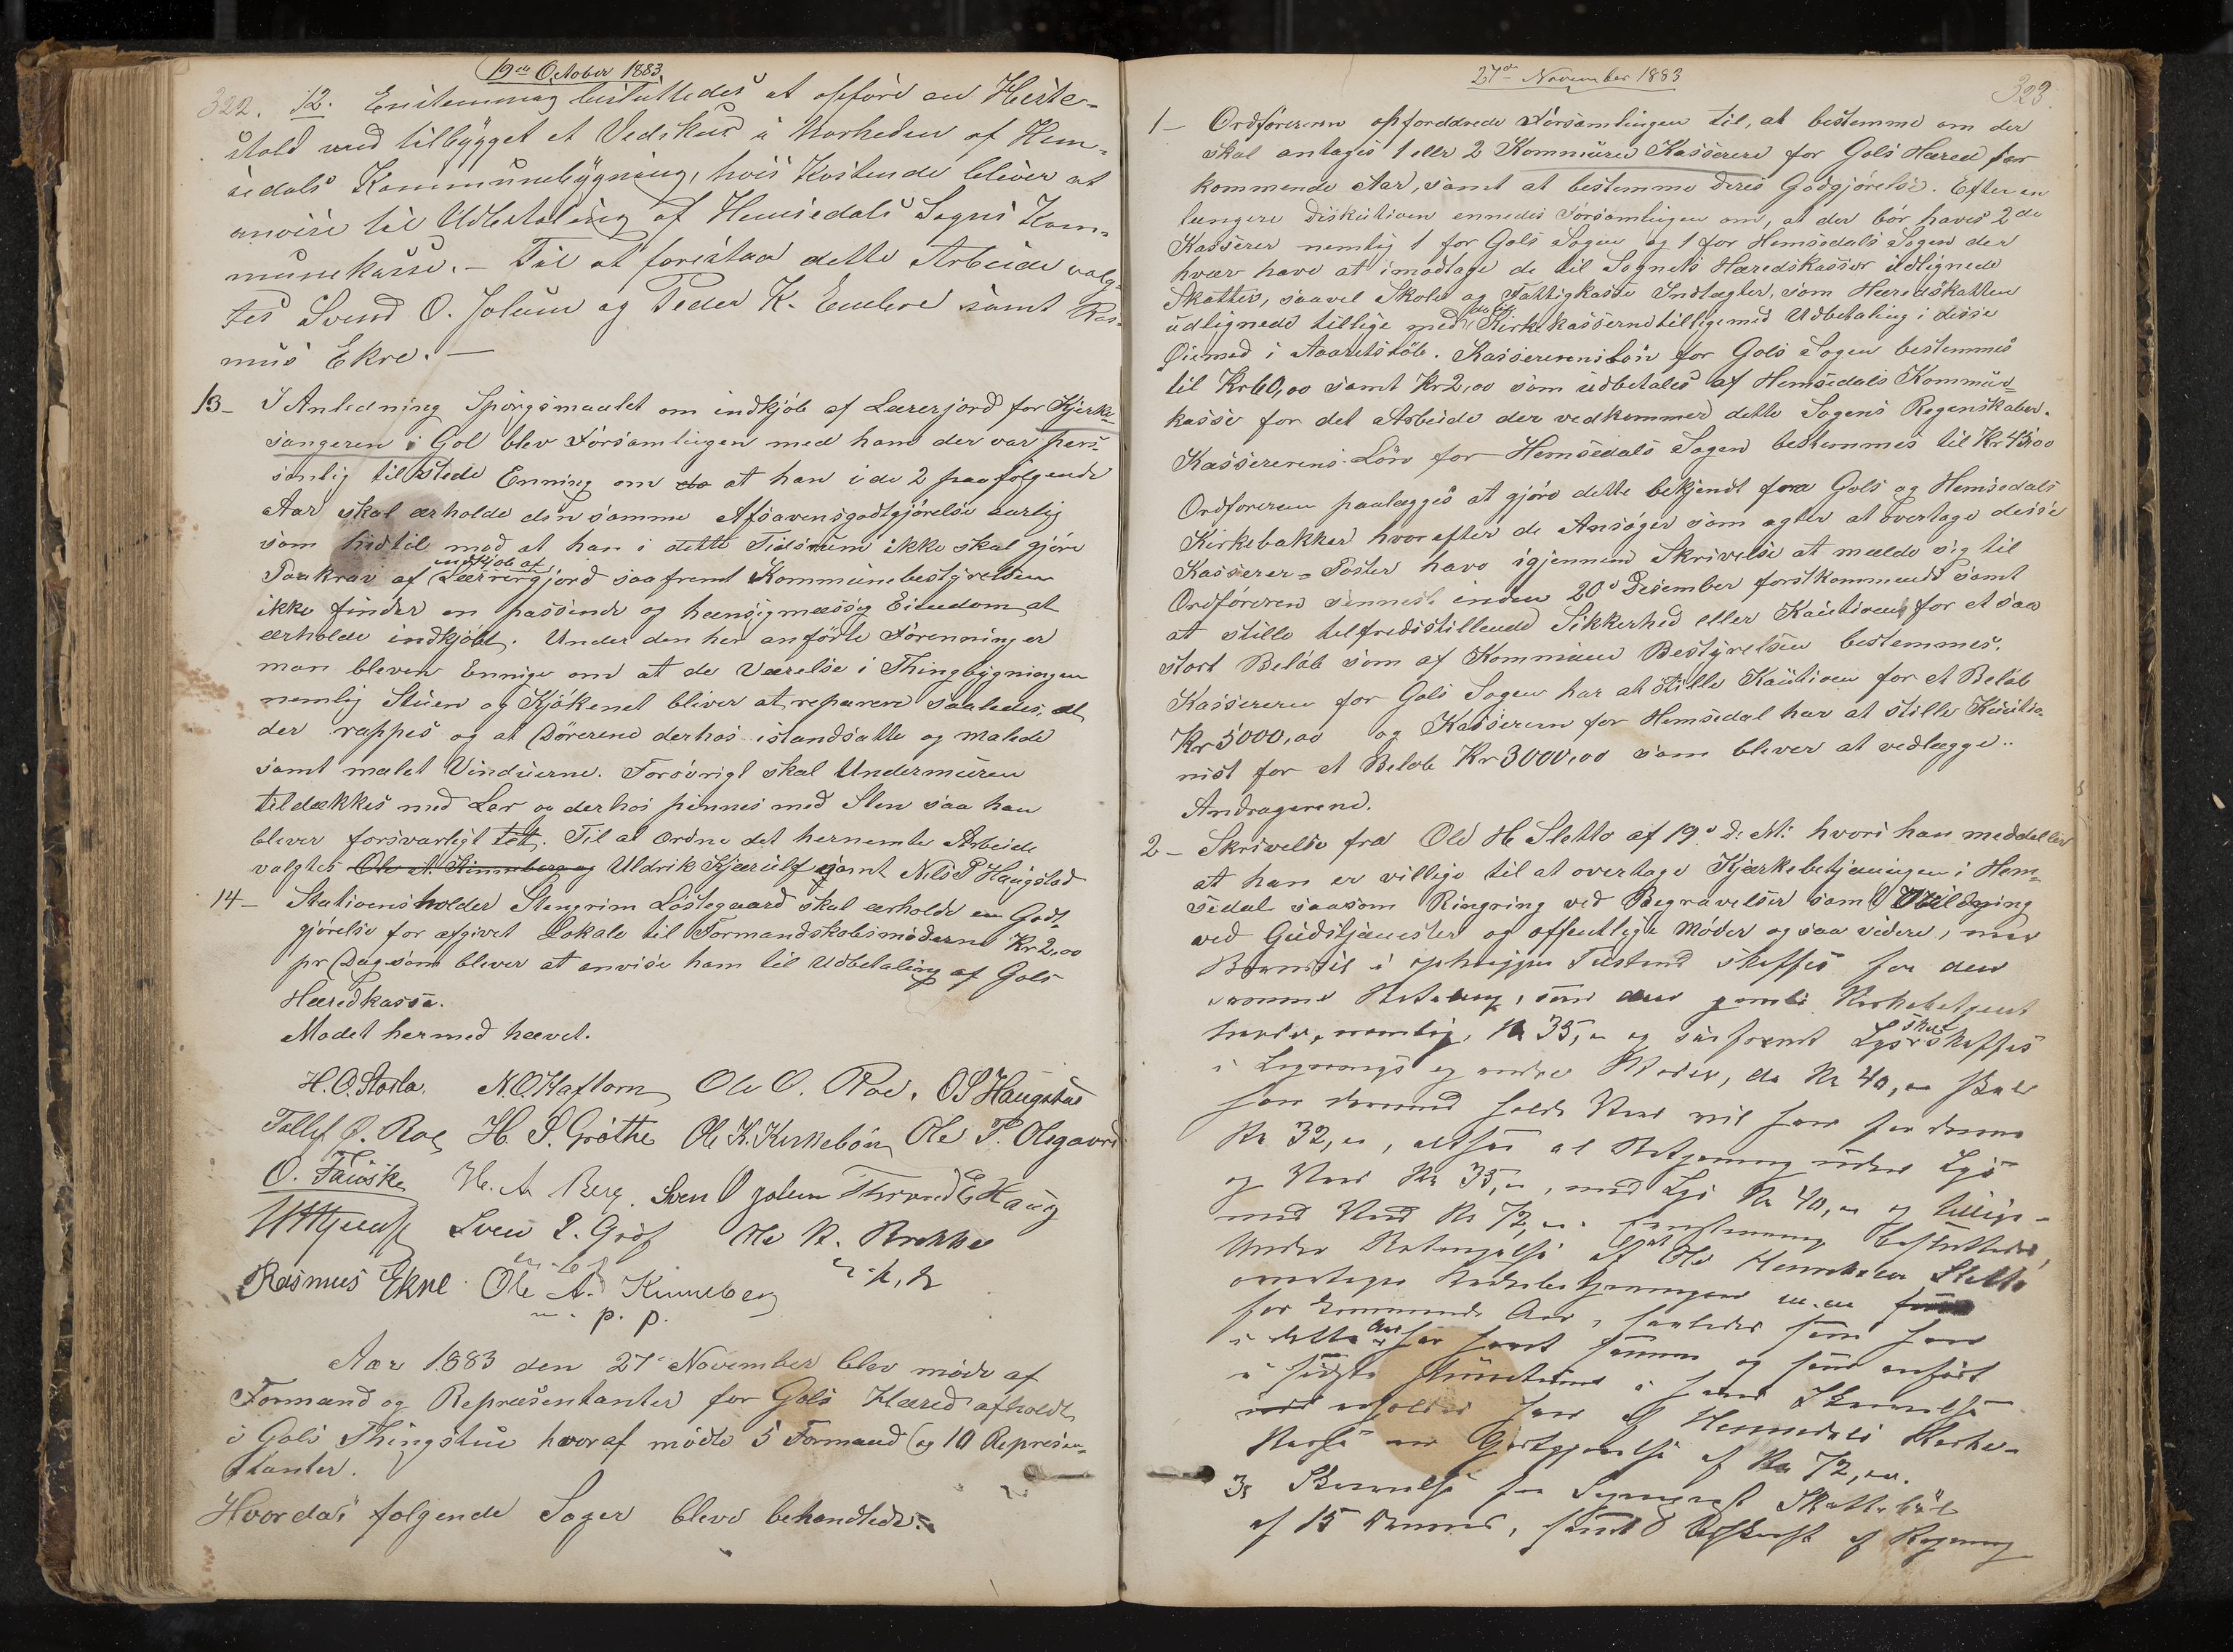 19de October 1883
322. 12. Enstemmig besluttedes at opføre en Heste-
stald med tilbygget et Vedskur i Nærheden af Hem-
sedals Kommunebygning, hvis Kostende bliver at
anvise til Udbetaling af Hemsedals Sogns Kom-
munekasse. - Til at forestaa dette Arbeide valg-
tes Svend O. Jolum og Peder K. Embre samt Ras-
mus Ekre. -
13- I Anledning Spørgsmaalet om indkjøb af Lærerjord for Kjerke-
sangeren i Gol blev Forsamlingen med ham der var pers-
sonlig tilstede Enning om da at han i de 2 paafølgende
Aar skal erholde den samme Afsavensgodtgjørelse aarlig
som hidtil mod at han i dette Tidsrum ikke skal gjøre
indkjøb af
Paakrav af Lærerjord saafremt Kommunebestyrelsen
ikke finder en passende og hensigmæssig Eiendom at
erholde indkjøbt. Under den her anførte Forenning er
man bleven Ennige om at de Værelse i Thingbygningen
nemlig Stuen og Kjøkenet bliver at reparere saaledes, at
der rappes og at Dørerene derhos istandsatte og malede
samt malet Vinduerne. Forøvrigt skal Undermuren
tildækkes med Ler og derhos pinnes med Sten saa han
blever forsvarligt tet. Til at ordne det hernemte Arbeide
valgtes Ole A. Kinneberg og Uldrik Kjærulf samt Nils P Haugstad
14- Stationsholder Stengrim Løstegaard skal erholde en Godt-
gjørelse for afgivet Lokale til Formandskabsmøderne Kr 2,00
pr Dag som blever at anvise ham til Udbetaling af Gols
Heredkasse.
Mødet hermed hævet.
H. O. Storla. N. O. Haftorn Ole O. Roe. O S Haugstad
Tollef O. Roe H. S. Grøthe Ole K. Kirkebøn Ole P. Olsgaard
O. Fauske H. A. Berg. Sven O Jolum Thrond E Haug
Sven P. Grøf Ole N. Brekke
Rasmus Ekre Ole A. Kinneberg
m. p. p.
Aar 1883 den 27de November blev møde af
Formænd og Repræsentanter for Gols Hered afholdt
i Gols Thingstue hvoraf mødte 5 Formænd og 10 Represen-
tanter.
Hvordas følgende Sager blevo behandlede:
27de November 1883
323.
1- Ordføreren opforddrede Forsamlingen til, at bestemme om der
skal antages 1 eller 2 Kommune Kasserere for Gols Hered for
kommende Aar, samt at bestemme deres Godgjørelse. Efter en
længere Diskution ennedes Forsamlingen om, at der bør haves 2de
Kasserer nemlig 1 for Gols Sogn og 1 for Hemsedals Sogn der
hvær have at imodtage de til Sognets Heredskasser udlignede
Skatter, saavel Skole og Fattigkasse Indtægter, som Heredskatten
udlignede tillige med Kirkekasserne tilligemed Udbetaling i disse
Øiemed i Aaretsløb. Kassererens Løn for Gols Sogn bestemmes
til Kr 60,00 samt Kr 2,00 som udbetales af Hemsedals Kommune-
kasse for det Arbeide der vedkommer dette Sogens Regenskaber.
Kassererens Løn for Hemsedals Sogn bestemmes til Kr 45,00
Ordføreren paalægges at gjøre dette bekjendt fra Gols og Hemsedals
Kirkebakker hvorefter de Ansøger som agter at overtage disse
Kasserer-Poster have igjennem Skrivelse at mælde sig til
Ordføreren sennest inden 20de Desember førstkommende samt
at stille telfredsstillende Sikkerhed eller Kaution for et saa
stort Beløb som af Kommune Bestyrelsen bestemmes.
Kassereren for Gols Sogen har at stille Kaution for et Beløb
Kr 5000,00 og Kassereren for Hemsedal har at stille Kautio-
nist for et Beløb Kr 3000,00 som blever at vedlægge
Andragerene.
2- Skrivelse fra Ole H Slette af 19de d. M. hvori han meddeller
at han er villige til at overtage Kjærkebetjeningen i Hem-
sedal saasom Ringring ved Begravelser samt Ildning
ved Gudstjænester og offentlige Møder og saa videre, naar
Brændsel i ophugget Tilstand skaffes for den
samme Betaling, som den gamle Kirkebetjent
havde, nemlig, Kr 35,00 og saafremt Lys skal skaffes
i Lignings og andre Møder, da Kr 40,00 skal
han dermed holde Ved vil han for denne
Kr 32,00, altsaa at Betjening uden Lys
og Ved Kr 35,00, med Lys Kr 40,00 og tillige-
med Ved Kr 72,00. Enstemmig besluttedes,
under Betingelse at Ole Slette
overtager Kirkebetjeningen
for kommende Aar, saaledes som han
i dette Aar har havt samme og som anført
i sidste i hans Skrivelse
erholder han af Hemsedals Kirke-
kasse en Godtgjørelse af Kr 72,00.
3. Skrivelse fra
af 15 samt Udskrift af